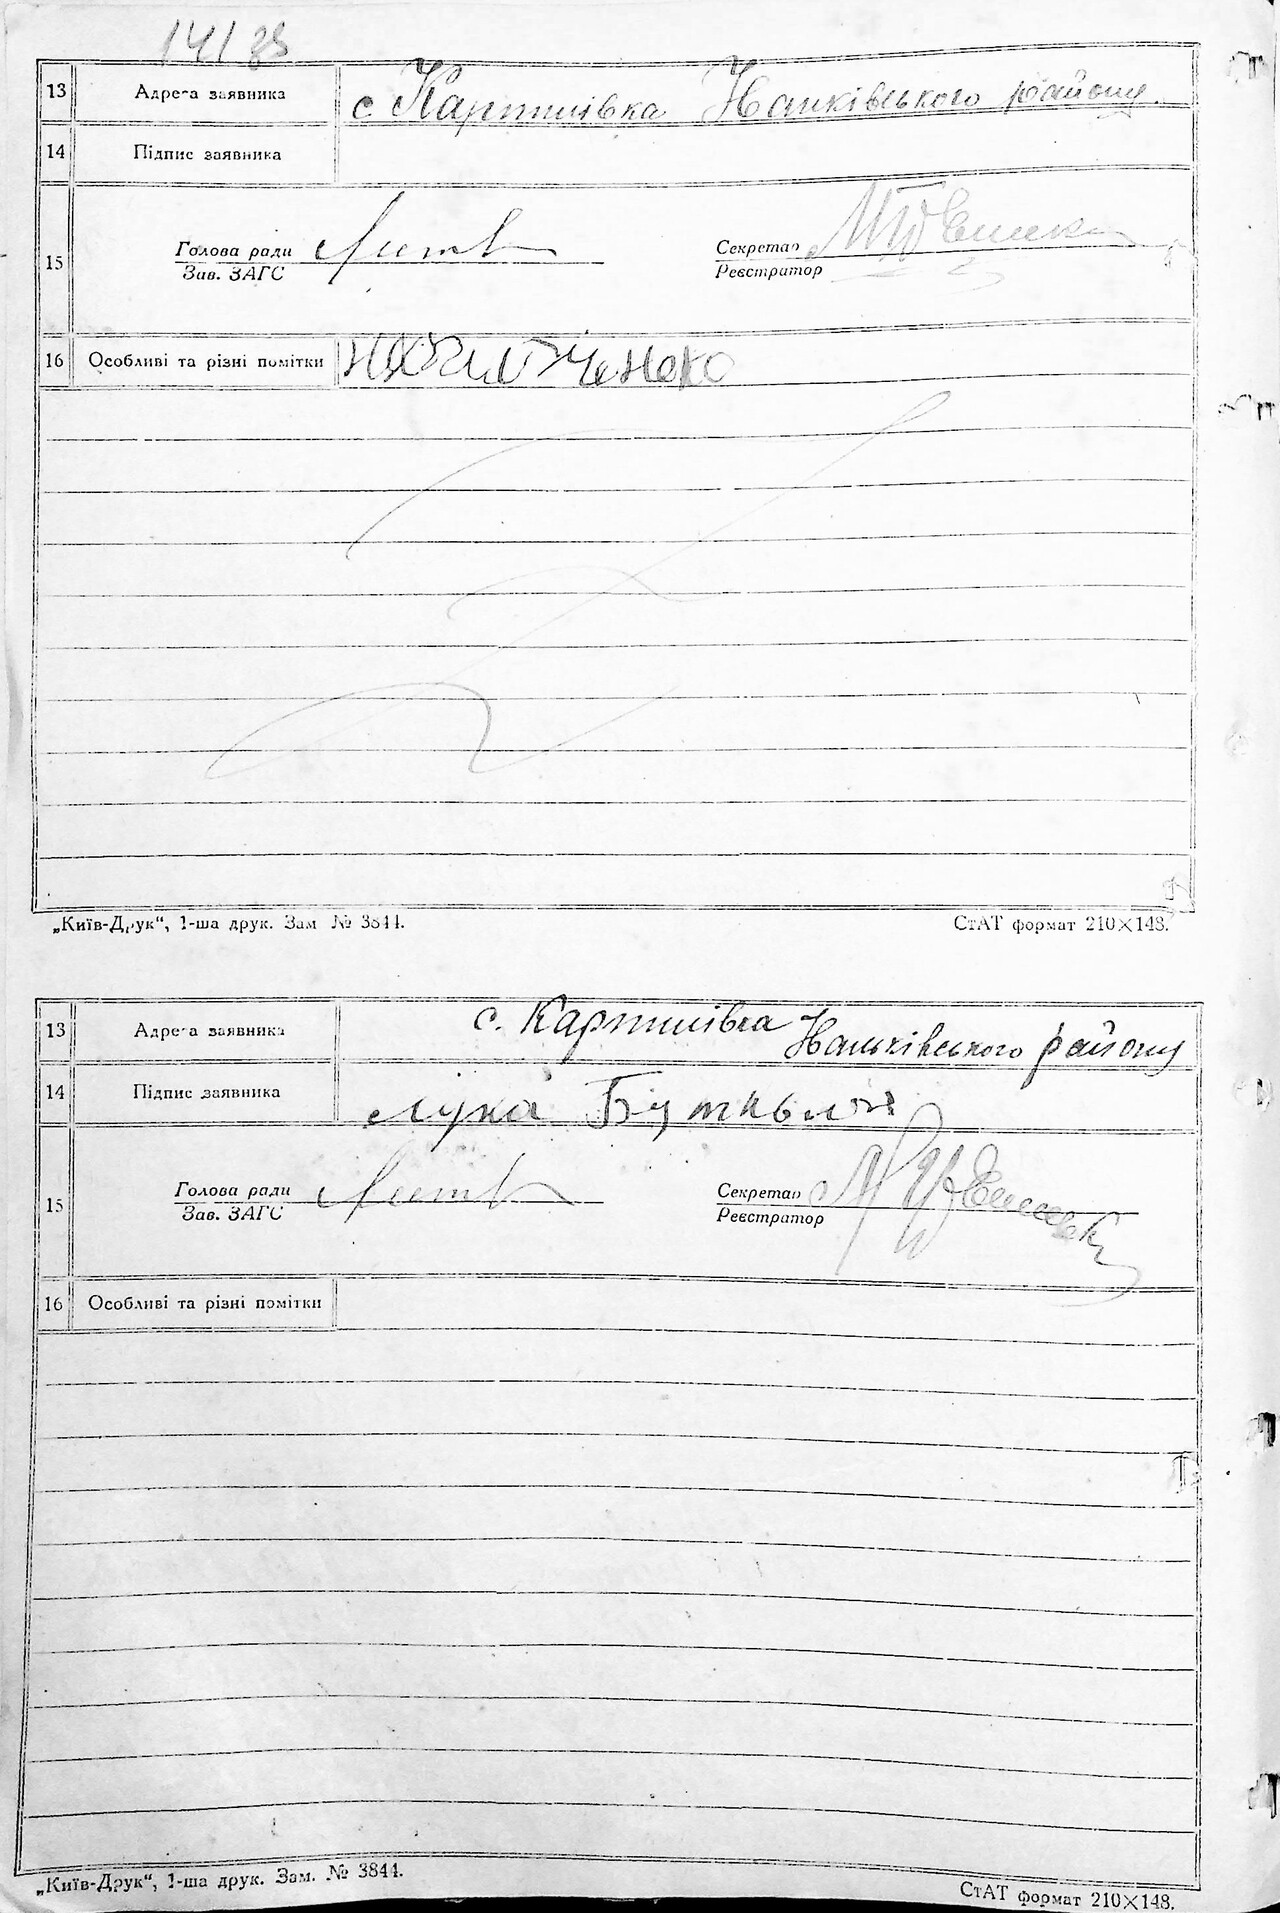 13 Адреса заявника с Картилівка Ханківського району.
14 Підпис заявника
15 Голова ради Литв Секретар
Зав. ЗАГС Реєстратор
16 Особливі та різні помітки
„Київ-Друк“, 1-ша друк. Зам № 3844. СтАТ формат 210×148.
13 Адреса заявника с. Картилівка
Ханьківського району
14 Підпис заявника Лука
15 Голова ради Литв Секретар
Зав. ЗАГС Реєстратор
16 Особливі та різні помітки
„Київ-Друк“, 1-ша друк. Зам. № 3844. СтАТ формат 210×148.